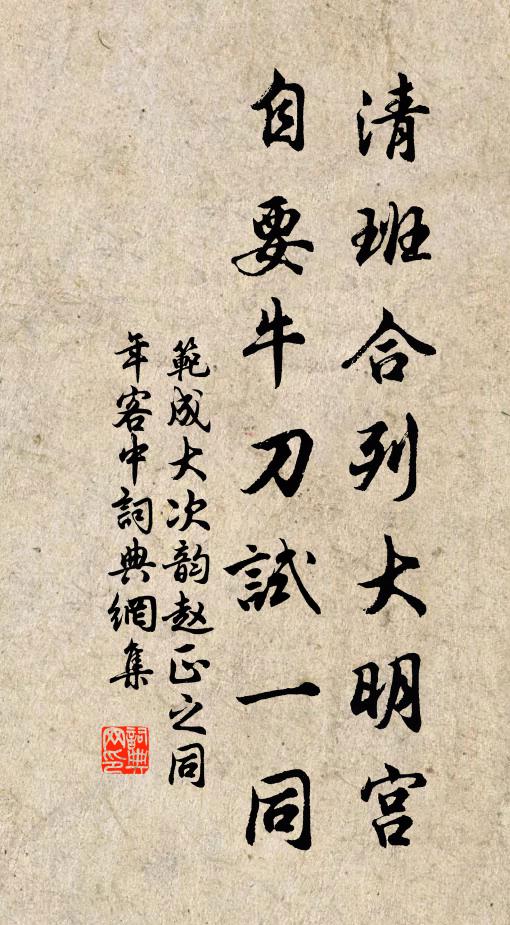 清班合列大明宫
自要牛刀試一同
範成大次韵赵正之同
年客中詞典網集
詞典网印